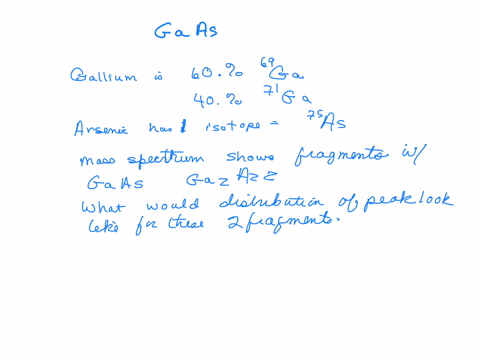 GaAs
Gallium is 60.% ⁶⁹Ga
40.% ⁷¹Ga
Arsenic has 1 isotope = ⁷⁵As
mass spectrum shows fragments w/
GaAs Ga2 As2
What would distribution of peak look
like for these 2 fragments.